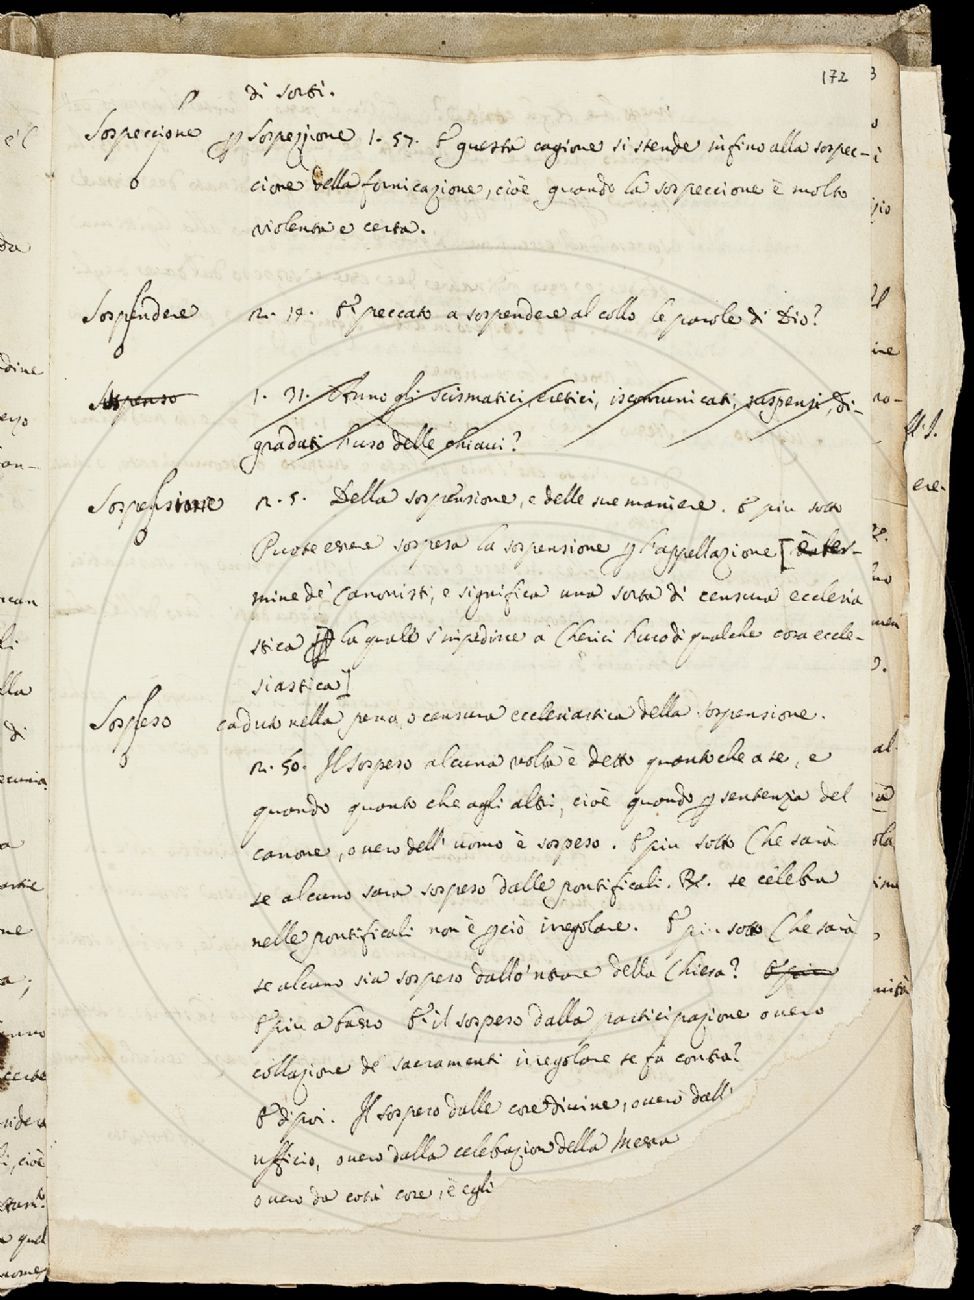 172
di sorti.
Sospeccione p Sospezzione 1. 57. E questa cagione si stende infino alla sospec-
cione della fornicazione, cioè quando la sospeccione è molto
violenta e certa.
Sospendere 2. 14. È peccato a sospendere al collo le parole di Dio?
Sospenso 1. 31. Anno gli Scismatici, eretici, iscomunicati, suspensi, di-
gradati l'uso delle chiavi?
Sospensione 2. 5. Della sospensione, e delle sue maniere. E più sotto
Puote essere sospesa la sospensione p l'appellazione [è ter-
mine de' Canonisti, e significa una sorta di censura ecclesia
stica p la quale s'impedisce a' Cherici l'uso di qualche cosa eccle-
siastica]
Sospeso caduto nella pena, o censura ecclesiastica della sospensione.
2. 50. Il Sospeso alcuna volta è detto quanto che a se, e
quando quanto che agli altri, cioè quando p sentenzia del
canone, overo dell' uomo è sospeso. E più sotto Che sarà
se alcuno sara sospeso dalle pontificali. R. se celebra
nelle pontificali non è p ciò irregolare. E più sotto Che sarà
se alcuno sia sospeso dall'entrare della Chiesa? E più
E più a basso E il sospeso dalla participazione overo
collazione de' sacramenti irregolare se fa contra?
E di poi. Il sospeso dalle cose divine, overo dall'
ufficio, overo dalla celebrazion della Messa
overo da cotà cose, è egli